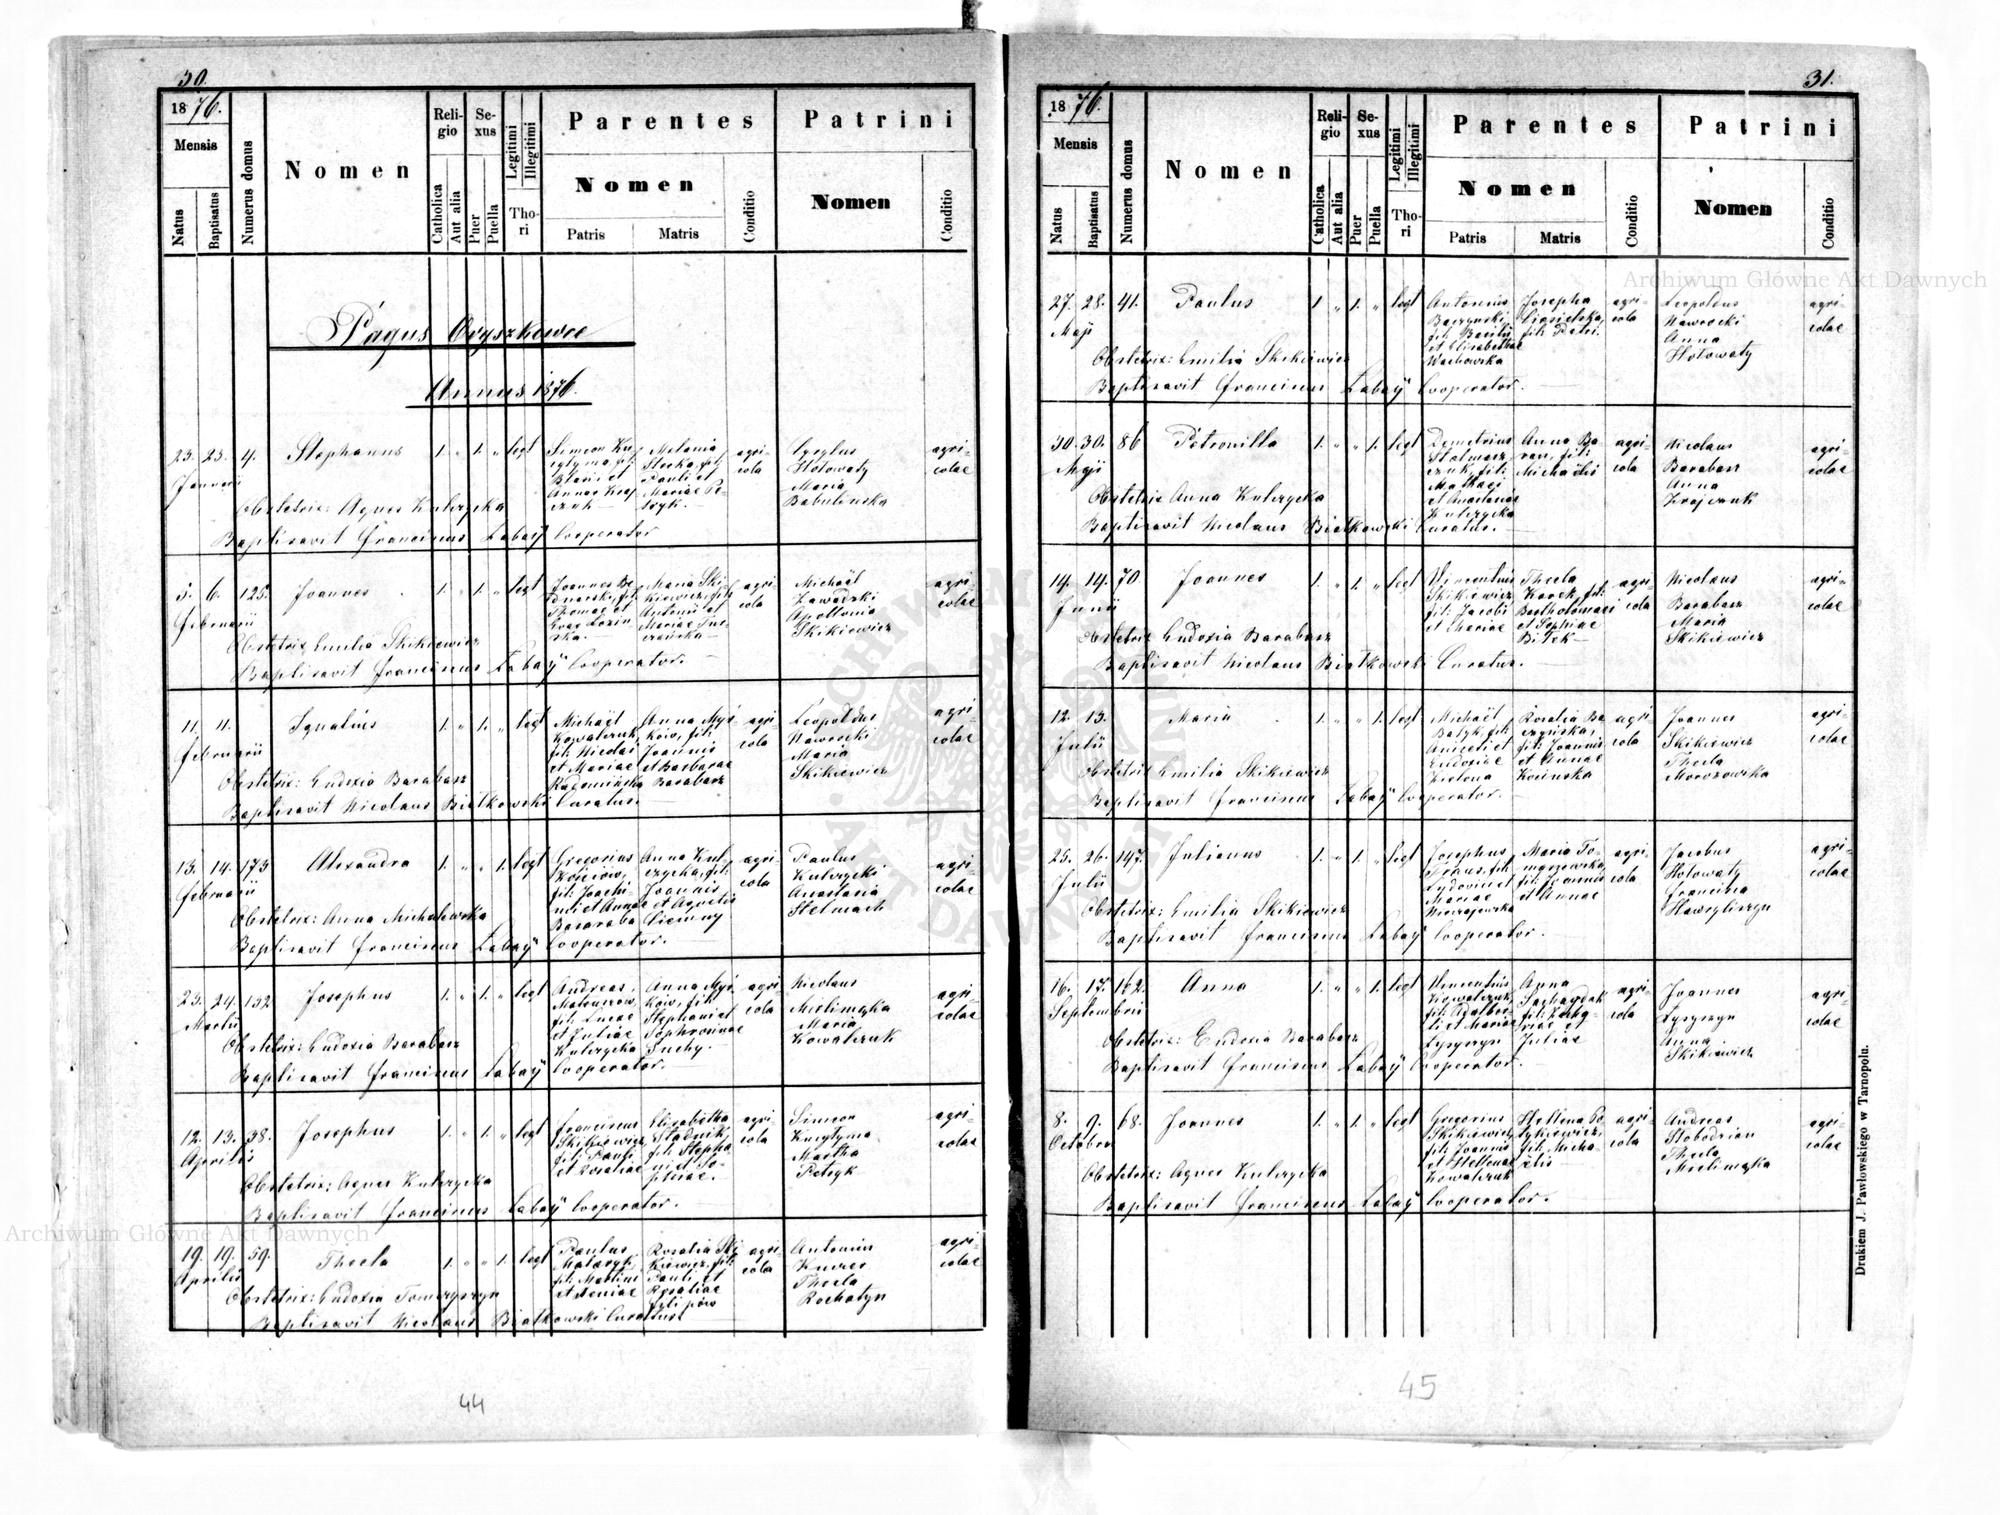 30.
1876.
Mensis
Natus
Baptisatus
Numerus domus
Nomen
Religio
Catholica
Aut alia
Sexus
Puer
Puella
Legitimi
Illegitimi
Thori
Parentes
Nomen
Patris
Matris
Conditio
Patrini
Nomen
Conditio
Pagus Oryszkowce
Annus 1876.
23. 23. 4. Stephanus 1. " 1. " legt
Januarii
Simeon
Blasii et
Annae
Melania
Pauli et
Mariae
agricola
Cyrylus
Hołowaty
Maria
Babulinska
agricolae
Obstetrix: Agnes Kulczycka
Baptisavit Franciscus Łabaÿ Cooperator
5. 6. 125. Joannes 1. " 1. " legt
Februarii
Joannes
Thomae et
Maria
Antonii et
Mariae
agricola
Michaël
Zawadzki
Apollonia
Skikiewicz
agricolae
Obstetrix Emilia Skikiewicz
Baptisavit Franciscus Łabaÿ Cooperator.
11. 11. Ignatius 1. " 1. " legt
Februarii
Michaël
Kowalczuk,
fil: Nicolai
et Mariae
Anna
Joannis
et Barbarae
Barabasz
agricola
Leopoldus
Nawrocki
Maria
Skikiewicz
agricolae
Obstetrix: Eudoxia Barabasz
Baptisavit Nicolaus Białkowski Curatus.
13. 14. 173 Alexandra 1. " " 1. legt
Februarii
Gregorius
et Annae
Basaraba
Anna Kulczycka, fil:
Joannis
et Agnetis
Ciemny
agricola
Paulus
Kulczycki
Anastasia
Stelmach
agricolae
Obstetrix: Anna Michalewska
Baptisavit Franciscus Łabaÿ Cooperator.
23. 24. 132 Josephus 1. " 1. " legt
Martii
Andreas
fil: Lucae
et Juliae
Kulczycka
Anna
Stephani et
Sophrosinae
Suchy.
agricola
Nicolaus
Mielimąka
Maria
Kowalczuk
agricolae
Obstetrix: Eudoxia Barabasz
Baptisavit Franciscus Łabaÿ Cooperator.
12. 13. 38. Josephus 1. " 1. " legt
Aprilis
Franciscus
Skikiewicz,
fil: Pauli
et Rosaliae
Elisabetha
Stadnik,
fil: Stephani et
agricola
Simeon
Martha
Petryk
agricolae
Obstetrix: Agnes Kulczycka
Baptisavit Franciscus Łabaÿ Cooperator.
19. 19. 59. Thecla 1. " " 1. legt
Aprilis
Paulus
fil: Martini
Rosalia Skikiewicz, fil:
Pauli et
Rosaliae
agricola
Antonius
Thecla
Rohatyn
agricolae
Obstetrix: Eudoxia Tomczyszyn
Baptisavit Nicolaus Białkowski Curatus
44
31.
1876.
Mensis
Natus
Baptisatus
Numerus domus
Nomen
Religio
Catholica
Aut alia
Sexus
Puer
Puella
Legitimi
Illegitimi
Thori
Parentes
Nomen
Patris
Matris
Conditio
Patrini
Nomen
Conditio
27. 28. 41. Paulus 1. " 1. " legt
Maji
Antonius
Baczynski,
fil: Basilii
et Elisabethae
Wachowska
Josepha
fil: Petri.
agricola
Leopoldus
Nawrocki
Anna
Hołowaty
agricolae
Obstetrix: Emilia Skikiewicz
Baptisavit Franciscus Łabaÿ Cooperator.
30. 30. 86 Petronilla 1. " " 1. legt
Maji
Demetrius
et Anastasiae
Kulczycka
Anna Baran, fil:
Michaëlis
agricola
Nicolaus
Barabasz
Anna
Zrajczuk
agricolae
Obstetrix Anna Kulczycka
Baptisavit Nicolaus Białkowski Curatus.
14. 14. 70. Joannes 1. " 1. " legt
Junii
Vincentius
Skikiewicz
fil: Jacobi
et Mariae
Thecla
fil:
Bartholomaei
et Sophiae
Bilek
agricola
Nicolaus
Barabasz
Maria
Skikiewicz
agricolae
Obstetrix Eudoxia Barabasz
Baptisavit Nicolaus Białkowski Curatus.
12. 13. Maria 1. " " 1. legt
Julii
Michaël
Aniceti et
Eudoxiae
Zielona
Rosalia
fil: Joannis
et Annae
agricola
Joannes
Skikiewicz
Thecla
Morozowska
agricolae
Obstetrix Emilia Skikiewicz
Baptisavit Franciscus Łabaÿ Cooperator.
25. 26. 147. Julianus 1. " 1. " legt
Julii
Josephus
Mariae
Maria
fil: Joannis
et Annae
agricola
Jacobus
Hołowaty
Francisca
Hawryliszyn
agricolae
Obstetrix: Emilia Skikiewicz
Baptisavit Franciscus Łabaÿ Cooperator.
16. 17. 162. Anna 1. " " 1. legt
Septembris
Vincentius
Kowalczuk,
fil: Adalberti et Mariae
Łyszczyn
Anna
Juliae
agricola
Joannes
Łyszczyn
Anna
Skikiewicz
agricolae
Obstetrix: Eudoxia Barabasz
Baptisavit Franciscus Łabaÿ Cooperator.
8. 9. 68. Joannes 1. " 1. " legt
October
Gregorius
Skikiewicz,
fil: Joannis
et Hellenae
Kowalczuk
Hellena
fil: Michaëlis
agricola
Andreas
Słobodzian
Thecla
Mielimąka
agricolae
Obstetrix: Agnes Kulczycka
Baptisavit Franciscus Łabaÿ Cooperator.
Drukiem J. Pawłowskiego w Tarnopolu.
45
Archiwum Główne Akt Dawnych
Archiwum Główne Akt Dawnych